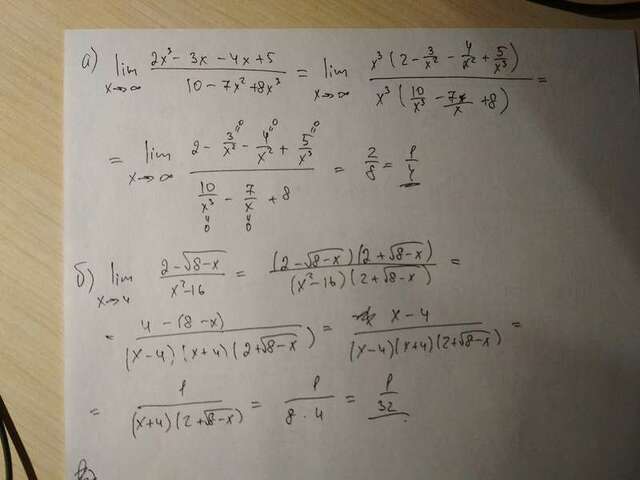 а) lim x→∞ (2x³ - 3x - 4x + 5)/(10 - 7x² + 8x³) = lim x→∞ x³(2 - 3/x² - 4/x² + 5/x³)/x³(10/x³ - 7x/x + 8) =
= lim x→∞ (2 - 3/x² - 4/x² + 5/x³)/(10/x³ - 7/x + 8) = 2/8 = 1/4
б) lim x→4 (2 - √8-x)/(x² - 16) = (2 - √8-x)(2 + √8-x)/(x² - 16)(2 + √8-x) =
= 4 - (8 - x)/(x - 4)(x + 4)(2 + √8-x) = x - 4/(x - 4)(x + 4)(2 + √8-x) =
= 1/(x + 4)(2 + √8-x) = 1/8 · 4 = 1/32